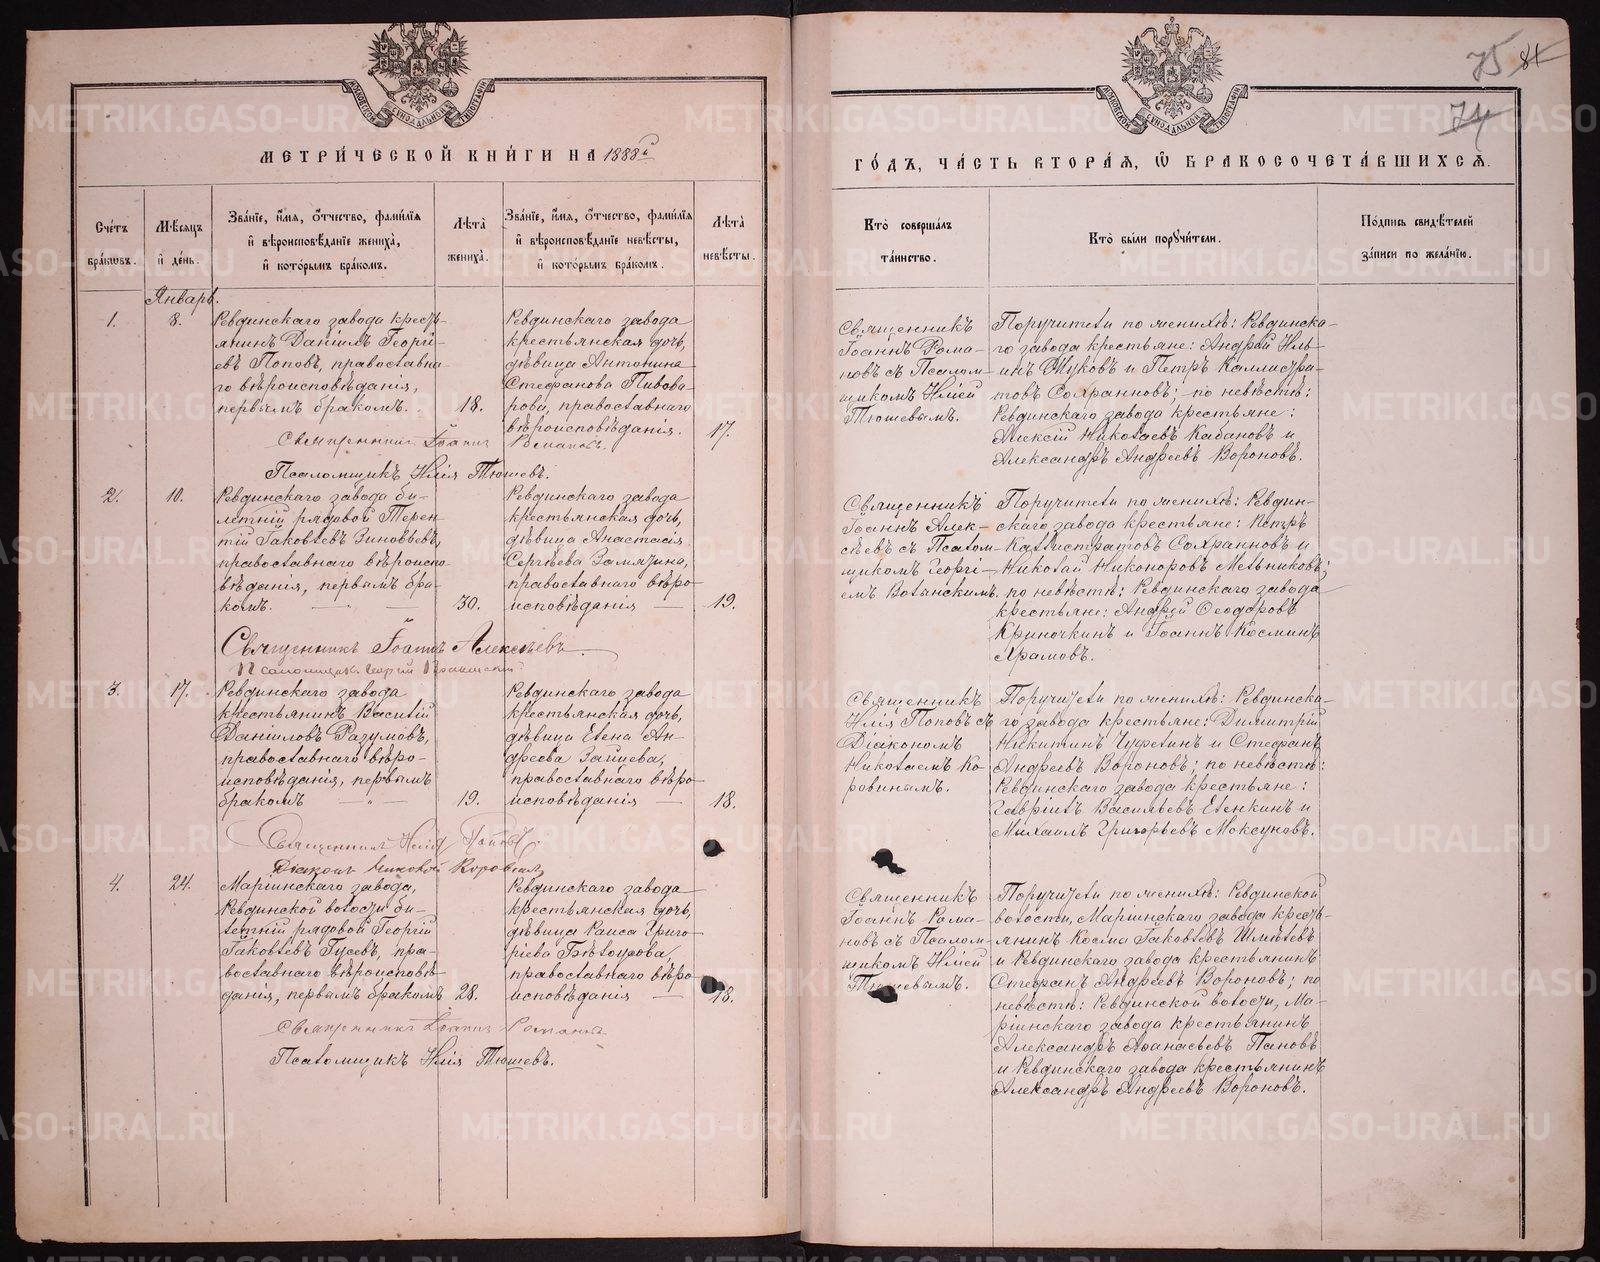 75 84
74
МЕТРИ́ЧЕСКОЙ КНИ́ГИ НА 1888й
ГО́ДЪ, ЧА́СТЬ ВТОРА́Ѧ, Ѽ БРАКОСОЧЕТА́ВШИХСѦ.
Сче́тъ бра́кѡвъ.
Мѣ́сѧцъ и҆ день.
Зва́нїе, и҆́мѧ, ѻ҆́тчество, фами́лїѧ
и҆ вѣроисповѣ́данїе жениха̀,
и҆ кото́рымъ бра́комъ.
Лѣта̀ жениха̀.
Зва́нїе, и҆́мѧ, ѻ҆́тчество, фами́лїѧ
и҆ вѣроисповѣ́данїе невѣ́сты,
и҆ кото́рымъ бра́комъ.
Лѣта̀ невѣ́сты.
Кто̀ соверша́лъ та́инство.
Кто̀ бы́ли порꙋчи́тели.
По́дпись свидѣ́телей
за́писи по жела́нїю.
Январь.
1.
8.
Ревдинскаго завода кресть-
янинъ Даніилъ Георгі-
евъ Поповъ, православна-
го вѣроисповѣданія,
первымъ бракомъ.
18.
Ревдинскаго завода
крестьянская дочь,
дѣвица Антонина
Стефанова Пивова-
рова, православнаго
вѣроисповѣданія.
17.
Священникъ Іоаннъ Романовъ.
Псаломщикъ Илія Тюшевъ.
Священникъ
Іоаннъ Рома-
новъ съ Псалом-
щикомъ Иліей
Тюшевымъ.
Поручители по женихѣ: Ревдинска-
го завода крестьяне: Андрей Иль-
инъ Жуковъ и Петръ Каллистра-
товъ Сохранновъ; по невѣстѣ:
Ревдинскаго завода крестьяне:
Алексій Николаевъ Кабановъ и
Александръ Андреевъ Вороновъ.
2.
10.
Ревдинскаго завода би-
летній рядовой Терен-
тій Іаковлевъ Зиновьевъ,
православнаго вѣроиспо-
вѣданія, первымъ бра-
комъ. — —
30.
Ревдинскаго завода
крестьянская дочь,
дѣвица Анастасія
Сергѣева Замятина,
православнаго вѣро-
исповѣданія —
19.
Священникъ Іоаннъ Алексѣевъ
Псаломщикъ Георгій
Священникъ
Іоаннъ Алек-
сѣевъ съ Псалом-
щикомъ Георгі-
емъ
Поручители по женихѣ: Ревдин-
скаго завода крестьяне: Петръ
Каллистратовъ Сохранновъ и
Николай Никоноровъ Мельниковъ;
по невѣстѣ: Ревдинскаго завода
крестьяне: Андрей Ѳеодоровъ
Криночкинъ и Іоаннъ Косминъ
Храмовъ.
3.
17.
Ревдинскаго завода
крестьянинъ Василій
Даніиловъ Разумовъ,
православнаго вѣро-
исповѣданія, первымъ
бракомъ — " —
19.
Ревдинскаго завода
крестьянская дочь,
дѣвица Елена Ан-
дреева Зайцева,
православнаго вѣро-
исповѣданія —
18.
Священникъ Илія Поповъ.
Діаконъ Николай Коровинъ
Священникъ
Илія Поповъ съ
Діакономъ
Николаемъ Ко-
ровинымъ.
Поручители по женихѣ: Ревдинска-
го завода крестьяне: Димитрій
Никитинъ Чуфелинъ и Стефанъ
Андреевъ Вороновъ; по невѣстѣ:
Ревдинскаго завода крестьяне:
Гавріилъ Васильевъ Еленкинъ и
Михаилъ Григорьевъ Моксуновъ.
4.
24.
Маріинскаго завода,
Ревдинской волости би-
летній рядовой Георгій
Іаковлевъ Гусевъ, пра-
вославнаго вѣроисповѣ-
данія, первымъ бракомъ
28.
Ревдинскаго завода
крестьянская дочь,
дѣвица Раиса Григо-
ріева Бѣлоурова,
православнаго вѣро-
исповѣданія —
18.
Священникъ Іоаннъ Романовъ
Псаломщикъ Илія Тюшевъ.
Священникъ
Іоаннъ Рома-
новъ съ Псалом-
щикомъ Иліей
Тюшевымъ.
Поручители по женихѣ: Ревдинской
волости, Маріинскаго завода кресть-
янинъ Косма Іаковлевъ Шмелевъ
и Ревдинскаго завода крестьянинъ
Стефанъ Андреевъ Вороновъ; по
невѣстѣ: Ревдинской волости, Ма-
ріинскаго завода крестьянинъ
Александръ Аѳанасьевъ Пановъ
и Ревдинскаго завода крестьянинъ
Александръ Андреевъ Вороновъ.
METRIKI.GASO-URAL.RU